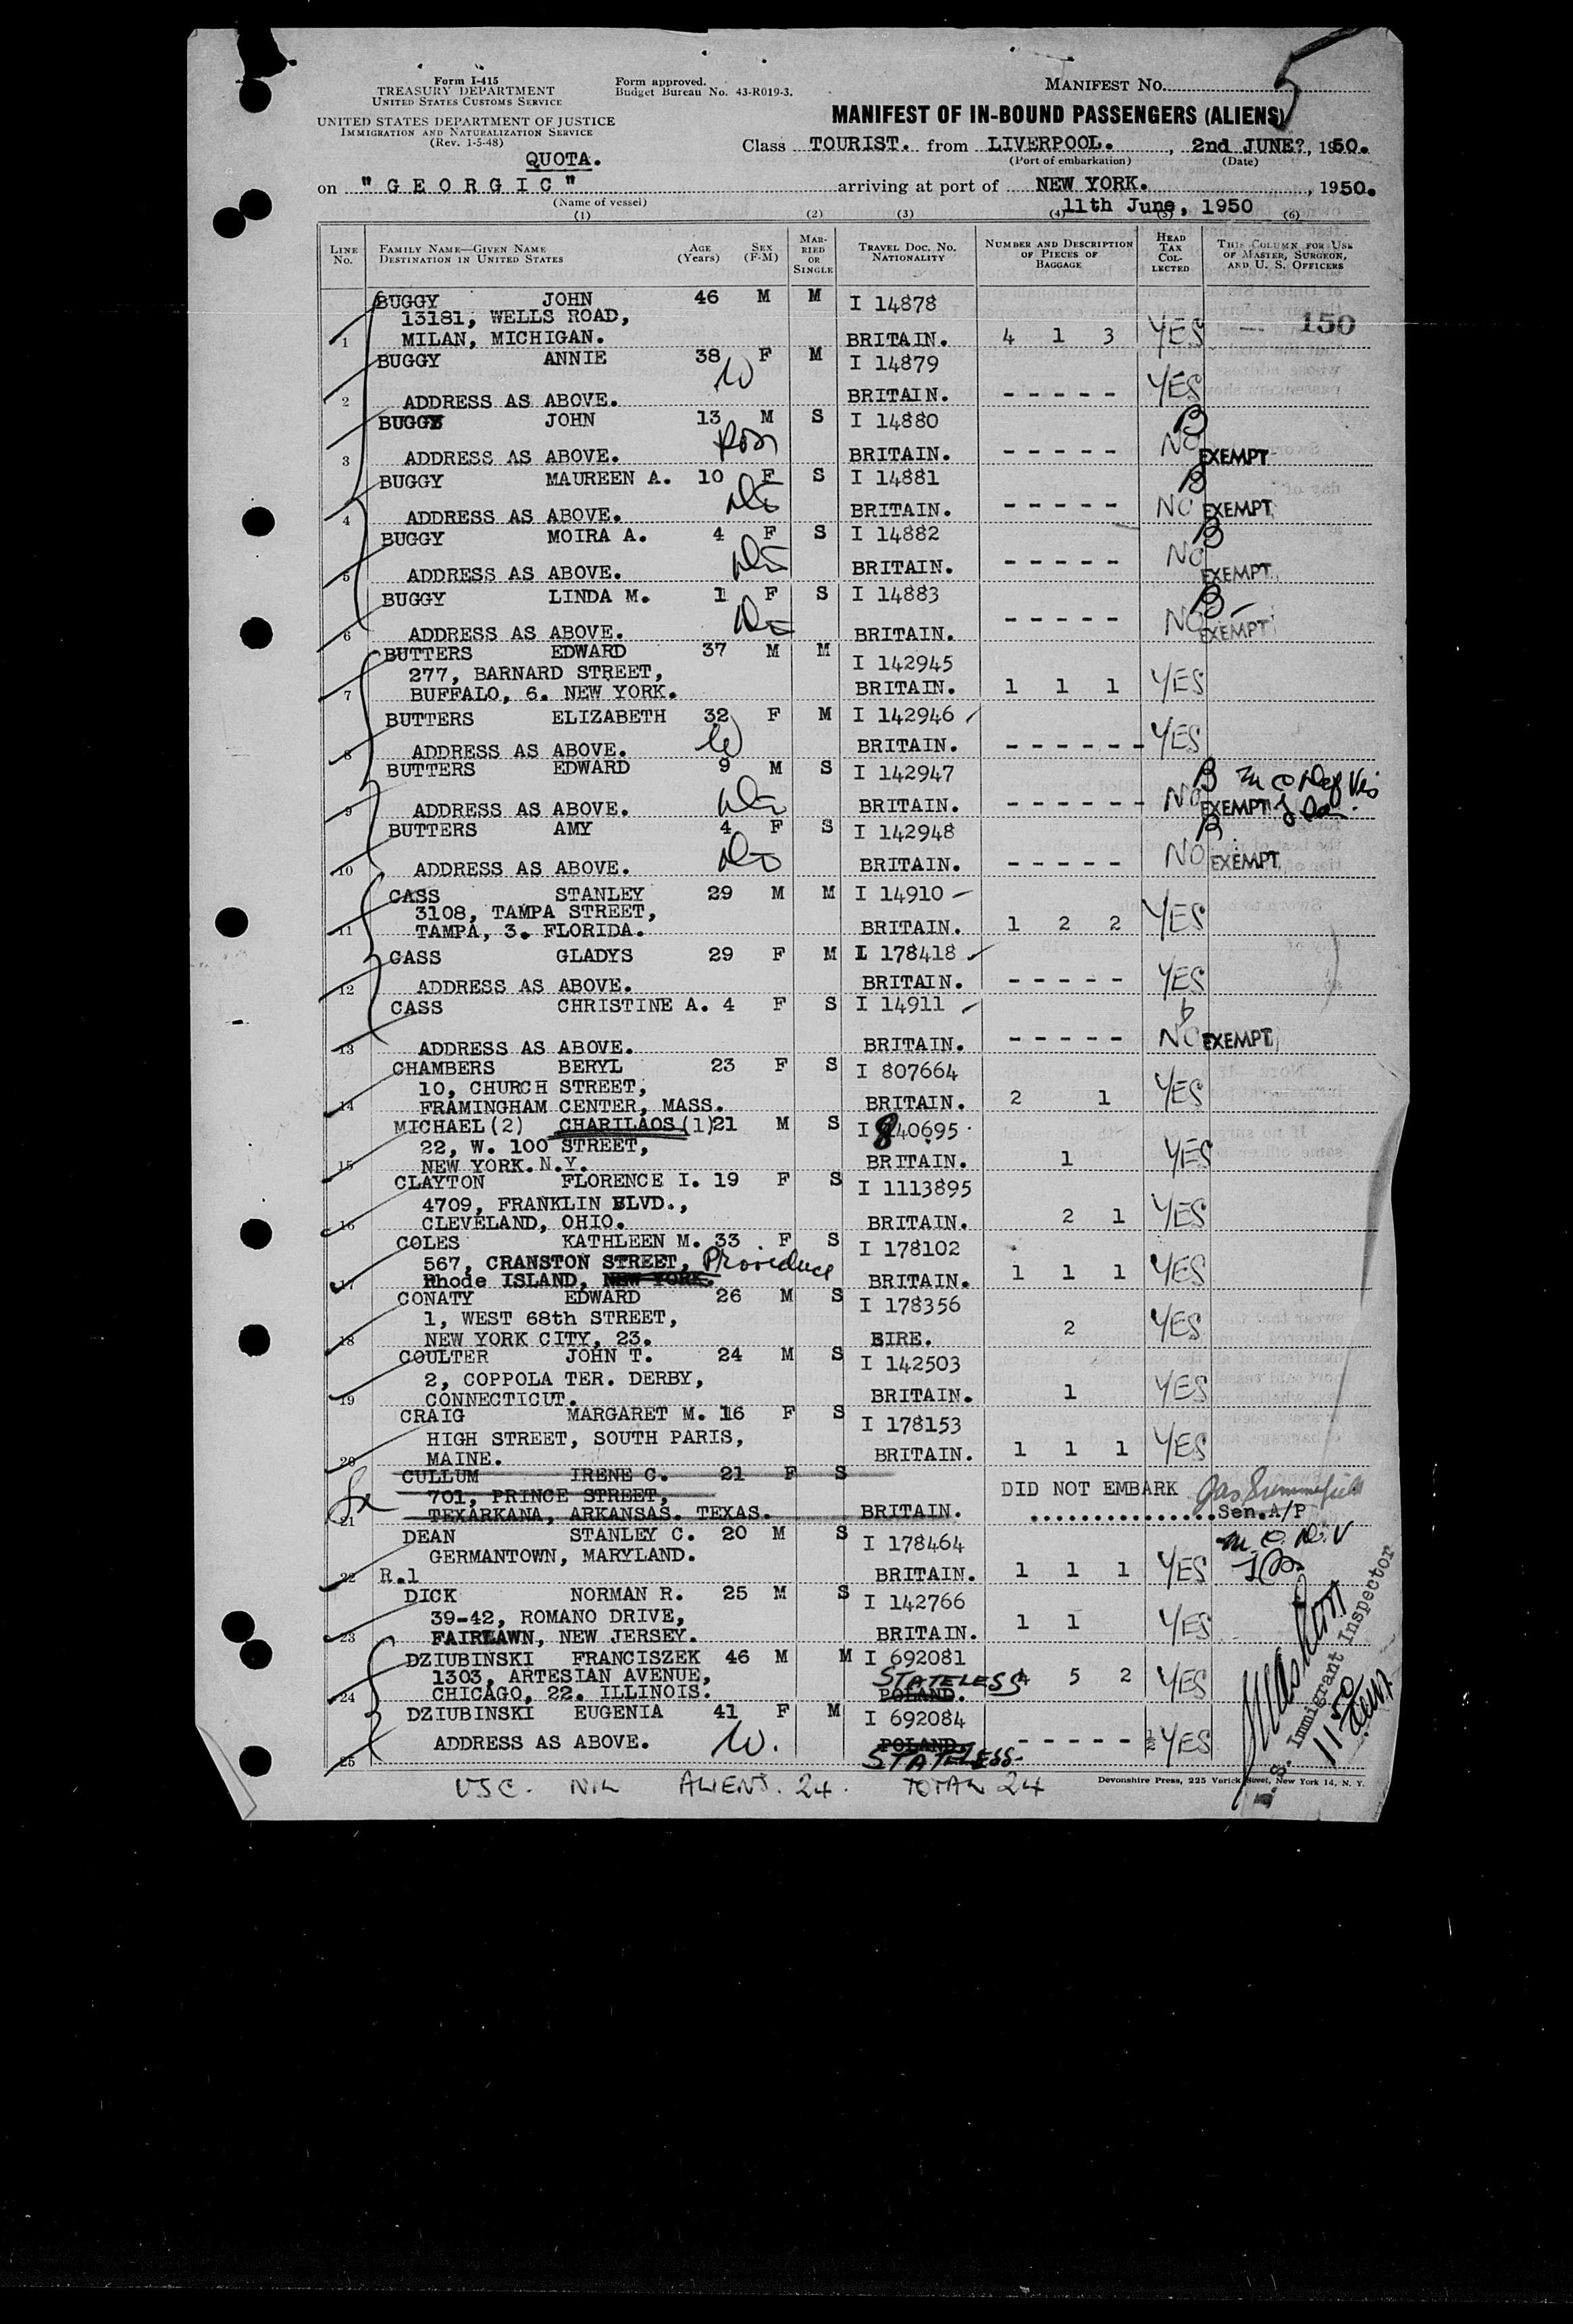 Form I-415
TREASURY DEPARTMENT
UNITED STATES CUSTOMS SERVICE
Form approved.
Budget Bureau No. 43-R019-3.
MANIFEST No. 5
UNITED STATES DEPARTMENT OF JUSTICE
IMMIGRATION AND NATURALIZATION SERVICE
(Rev. 1-5-48)
MANIFEST OF IN-BOUND PASSENGERS (ALIENS)
QUOTA.
Class TOURIST. from LIVERPOOL. , 2nd JUNE?, 1950.
(Port of embarkation) (Date)
on "GEORGIC" arriving at port of NEW YORK. , 1950.
(Name of vessel) 11th June, 1950
(1) (2) (3) (4) (5) (6)
LINE No. FAMILY NAME—GIVEN NAME DESTINATION IN UNITED STATES AGE (Years) SEX (F-M) MARRIED OR SINGLE TRAVEL DOC. NO. NATIONALITY NUMBER AND DESCRIPTION OF PIECES OF BAGGAGE HEAD TAX COLLECTED THIS COLUMN FOR USE OF MASTER, SURGEON, AND U. S. OFFICERS
BUGGY JOHN 46 M M I 14878
13181, WELLS ROAD, 150
1 MILAN, MICHIGAN. BRITAIN. 4 1 3 YES —
BUGGY ANNIE 38 F M I 14879
W
2 ADDRESS AS ABOVE. BRITAIN. - - - - - YES
BUGGY JOHN 13 M S I 14880 B
3 ADDRESS AS ABOVE. BRITAIN. - - - - - NO EXEMPT
BUGGY MAUREEN A. 10 F S I 14881 B
4 ADDRESS AS ABOVE. BRITAIN. - - - - - NO EXEMPT
BUGGY MOIRA A. 4 F S I 14882 B
5 ADDRESS AS ABOVE. BRITAIN. - - - - - NO EXEMPT
BUGGY LINDA M. 1 F S I 14883 B
6 ADDRESS AS ABOVE. BRITAIN. - - - - - NO EXEMPT
BUTTERS EDWARD 37 M M I 142945
277, BARNARD STREET,
7 BUFFALO, 6. NEW YORK. BRITAIN. 1 1 1 YES
BUTTERS ELIZABETH 32 F M I 142946
W
8 ADDRESS AS ABOVE. BRITAIN. - - - - - - YES
BUTTERS EDWARD 9 M S I 142947 B
9 ADDRESS AS ABOVE. BRITAIN. - - - - - - NO EXEMPT
BUTTERS AMY 4 F S I 142948 B
10 ADDRESS AS ABOVE. BRITAIN. - - - - - NO EXEMPT
CASS STANLEY 29 M M I 14910
3108, TAMPA STREET,
11 TAMPA, 3. FLORIDA. BRITAIN. 1 2 2 YES
CASS GLADYS 29 F M I 178418
12 ADDRESS AS ABOVE. BRITAIN. - - - - - YES
CASS CHRISTINE A. 4 F S I 14911
13 ADDRESS AS ABOVE. BRITAIN. - - - - - NO EXEMPT
CHAMBERS BERYL 23 F S I 807664
10, CHURCH STREET,
14 FRAMINGHAM CENTER, MASS. BRITAIN. 2 1 YES
MICHAEL (2) CHARILAOS (1) 21 M S I 840695
22, W. 100 STREET,
15 NEW YORK. N.Y. BRITAIN. 1 YES
CLAYTON FLORENCE I. 19 F S I 1113895
4709, FRANKLIN BLVD.,
16 CLEVELAND, OHIO. BRITAIN. 2 1 YES
COLES KATHLEEN M. 33 F S I 178102
567, CRANSTON STREET, Providence
17 Rhode ISLAND, NEW YORK. BRITAIN. 1 1 1 YES
CONATY EDWARD 26 M S I 178356
1, WEST 68th STREET,
18 NEW YORK CITY, 23. EIRE. 2 YES
COULTER JOHN T. 24 M S I 142503
2, COPPOLA TER. DERBY,
19 CONNECTICUT. BRITAIN. 1 YES
CRAIG MARGARET M. 16 F S I 178153
HIGH STREET, SOUTH PARIS,
20 MAINE. BRITAIN. 1 1 1 YES
CULLUM IRENE C. 21 F S
701, PRINCE STREET, DID NOT EMBARK
21 TEXARKANA, ARKANSAS. TEXAS. BRITAIN. Sen. A/P
DEAN STANLEY C. 20 M S I 178464
GERMANTOWN, MARYLAND.
22 R.1 BRITAIN. 1 1 1 YES
DICK NORMAN R. 25 M S I 142766
39-42, ROMANO DRIVE,
23 FAIRLAWN, NEW JERSEY. BRITAIN. 1 1 YES
DZIUBINSKI FRANCISZEK 46 M M I 692081
1303, ARTESIAN AVENUE, STATELESS
24 CHICAGO, 22. ILLINOIS. POLAND. 4 5 2 YES
DZIUBINSKI EUGENIA 41 F M I 692084
ADDRESS AS ABOVE. W. POLAND. - - - - - YES
25 STATELESS
U.S. Immigrant Inspector
USC. NIL ALIENS. 24. TOTAL 24
Devonshire Press, 225 Varick Street, New York 14, N. Y.